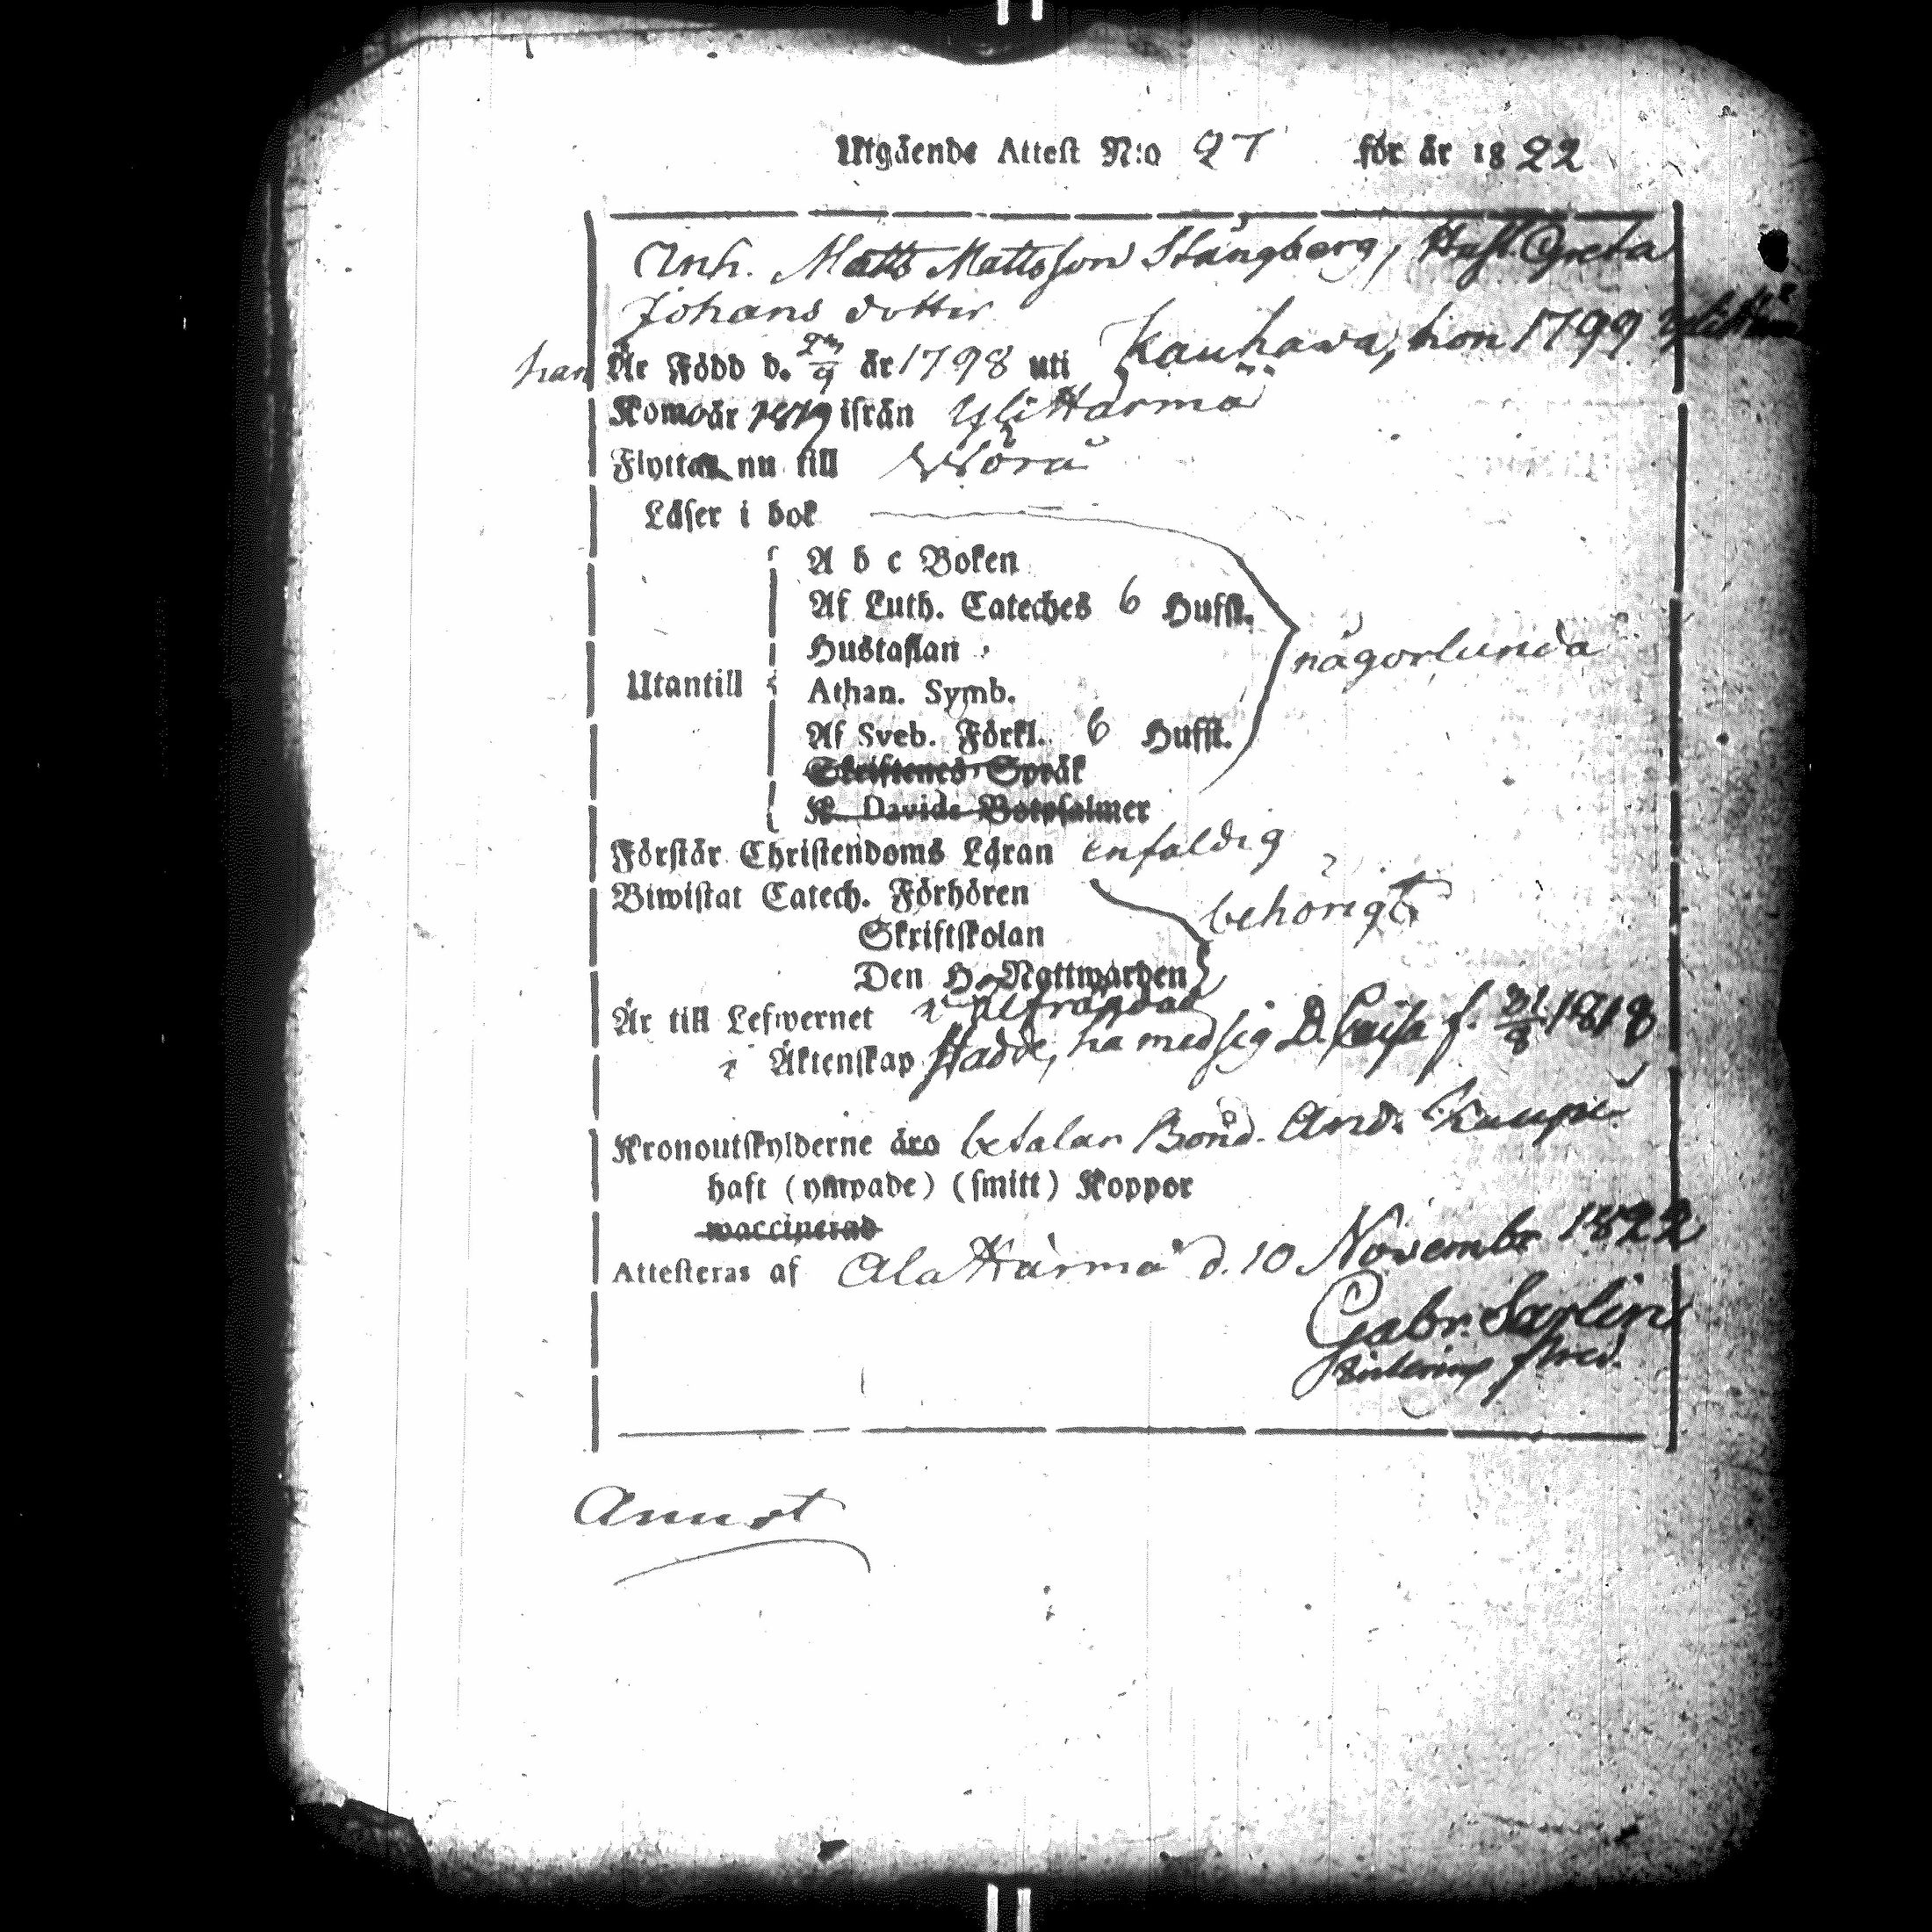 Utgående Attest N:o 27 för år 1822
Inh. Matts Mattsson Stångberg, Hust. Greta
Johans dotter
han Är Född d. 23/9 år 1798 uti Kauhawa, hon 1799
Kom år 1819 ifrån Yli Härmä
Flyttar nu till Wörå
Läser i bok
A b c Boken
Af Luth. Cateches 6 Hufst.
Hustaflan
någorlunda
Utantill
Athan. Symb.
Af Sveb. Förkl. 6 Hufst.
Skriftenes Språk
K. Davids Botpsalmer
Förstår Christendoms Läran enfaldig
Biwistat Catech. Förhören
behörigt
Skriftskolan
Den H. Nattwarden
Är till Lefwernet
i Äktenskap stadde, ha med sig D. Caisa f. 31/8 1818
Kronoutskylderne äro betalar Bond. And.
haft (ympade) (smitt) Koppor
waccinerad
Attesteras af Ala Härmä d. 10 Novembr 1822
Gabr. Sarlin